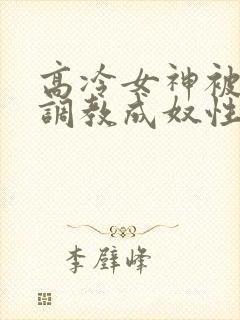 高冷女神被
調教成奴性
李壁峰